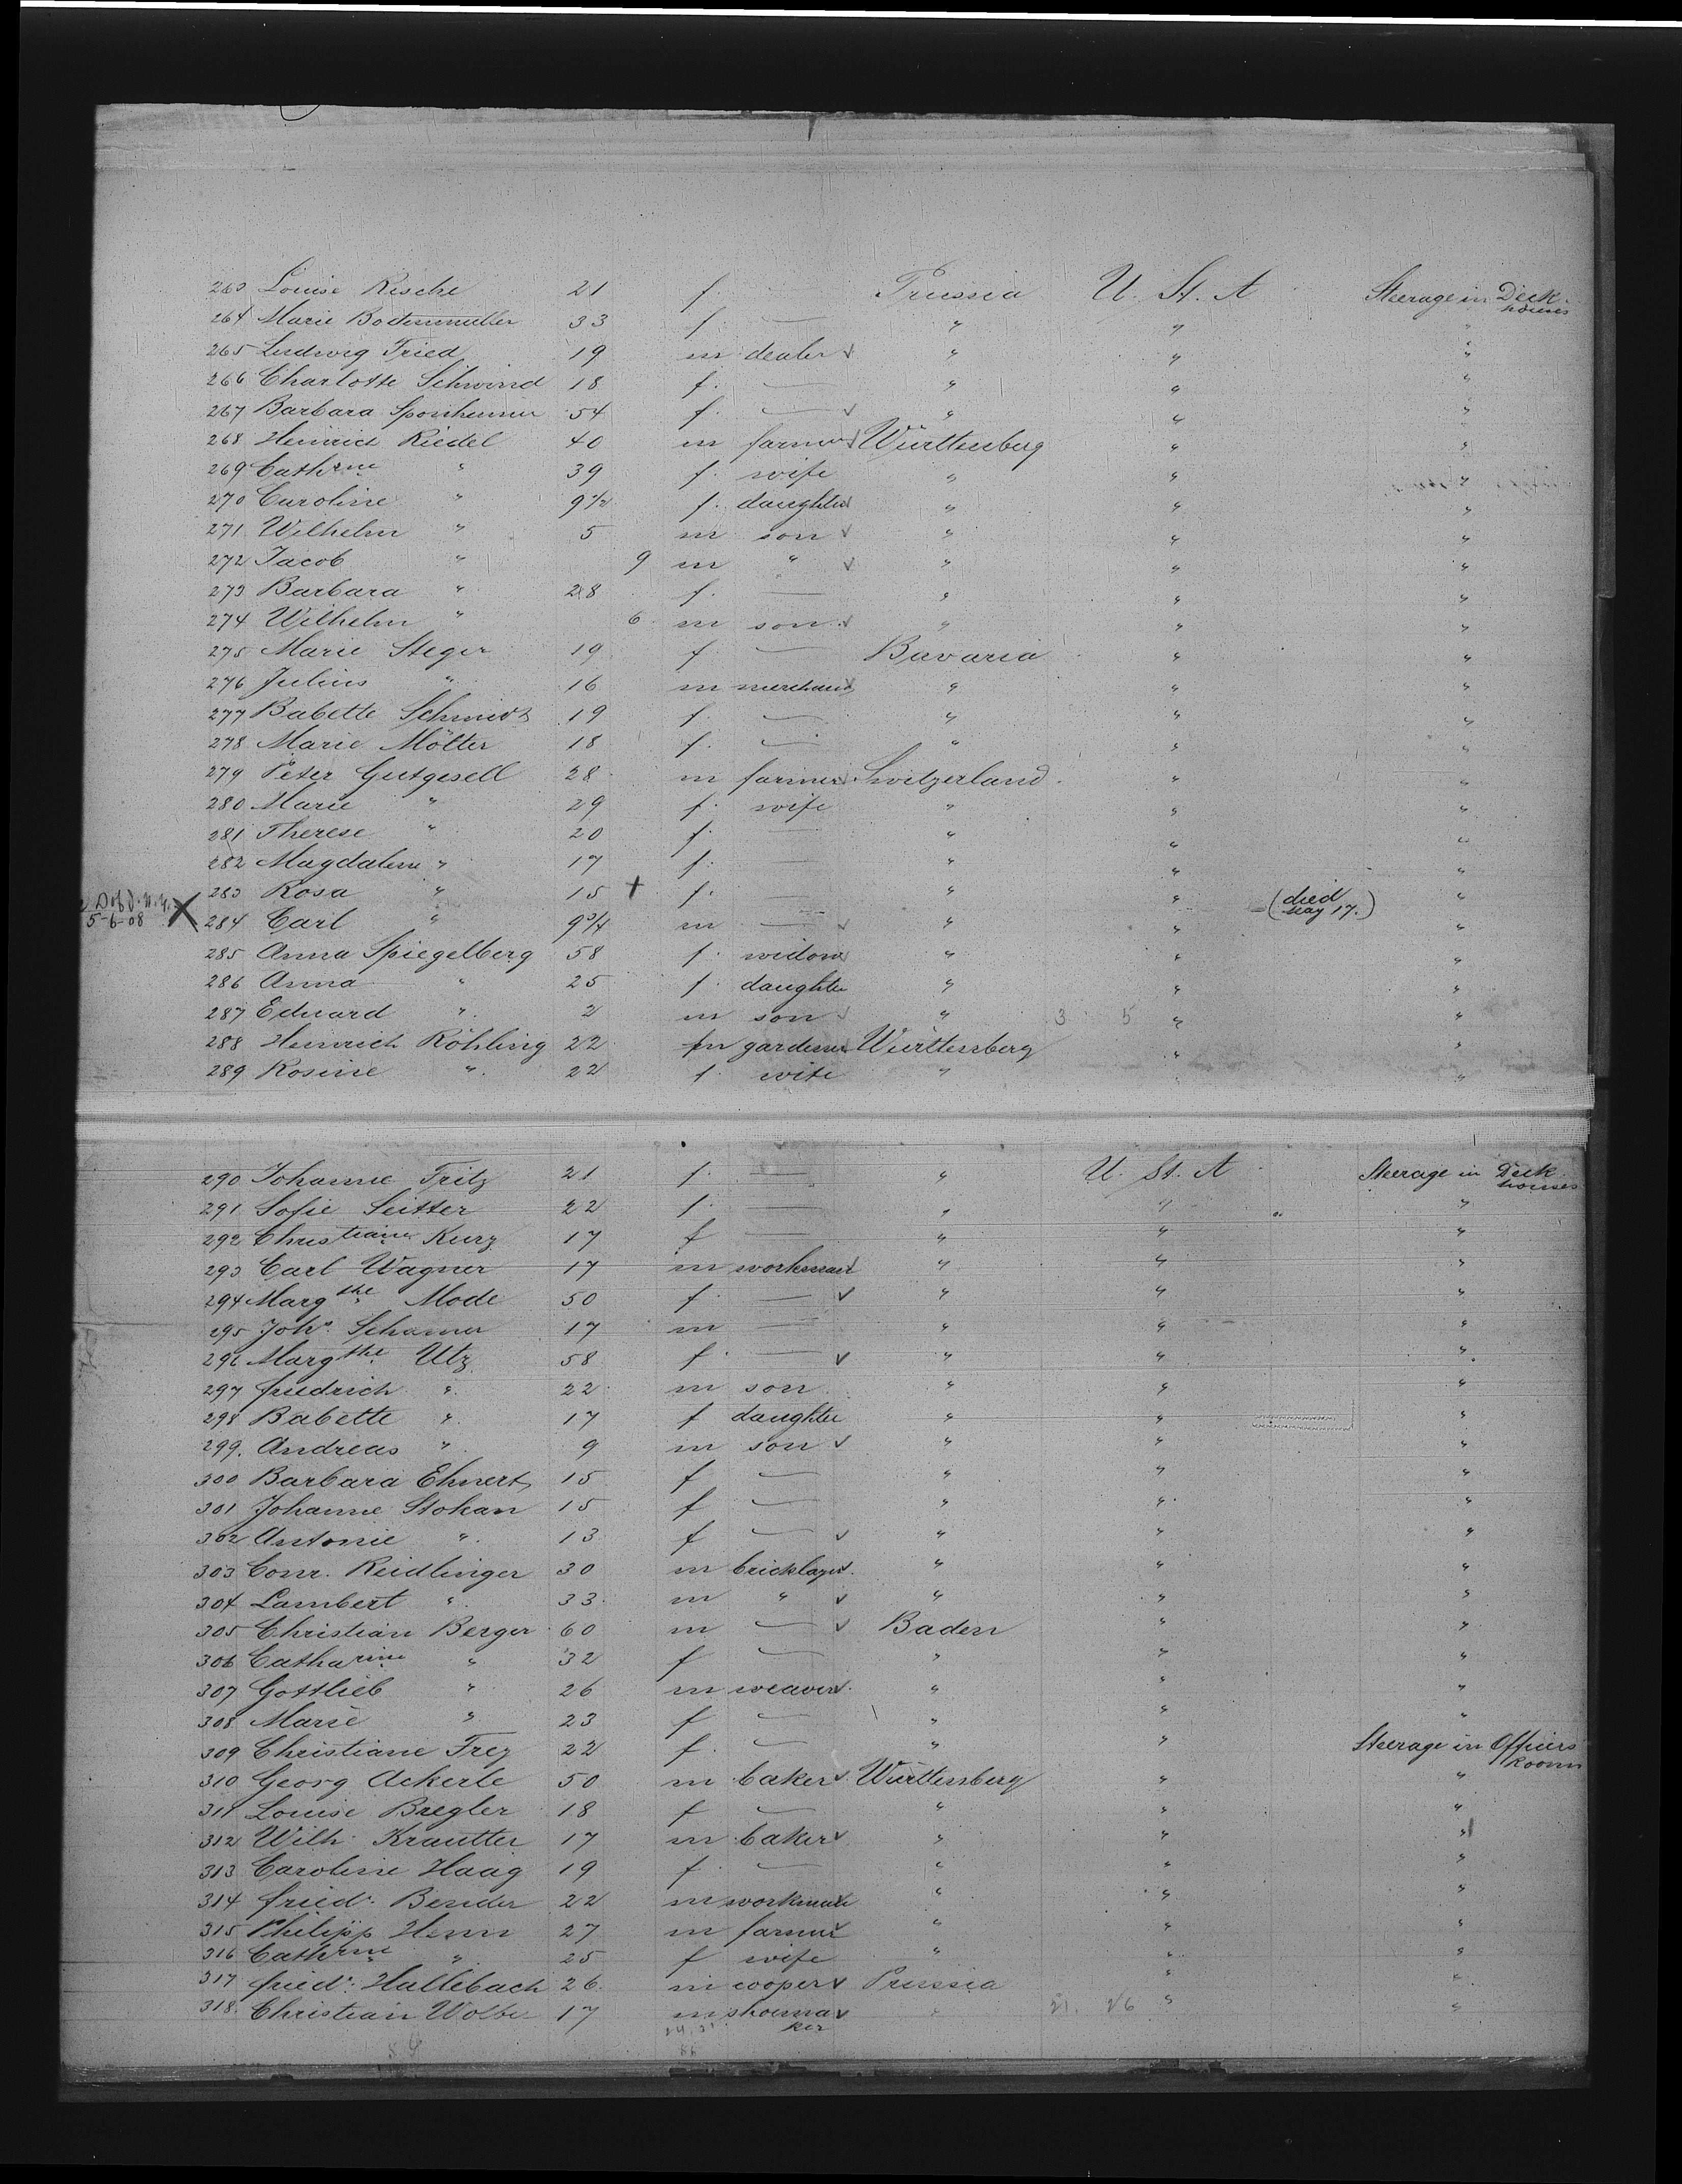 263 Louise Resche 21 f. Prussia U. St. A Steerage in Deck houses
264 Marie Bodenmüller 33 f. — " " "
265 Ludwig Fried 19 m dealer " " "
266 Charlotte Schwind 18 f. — " " "
267 Barbara Sponheimer 54 f. — " " "
268 Heinrich Riedel 40 m farmer Württemberg " "
269 Cathrine " 39 f. wife " " "
270 Caroline " 9 1/2 f. daughter " " "
271 Wilhelm " 5 m son " " "
272 Jacob " 9 m " " " "
273 Barbara " 28 f. — " " "
274 Wilhelm " 6 m son " " "
275 Marie Steger 19 f. — Bavaria " "
276 Julius " 16 m merchand " " "
277 Babette Schmidt 19 f. — " " "
278 Marie Mölter 18 f. — " " "
279 Peter Gutgesell 28 m farmer Switzerland " "
280 Marie " 29 f. wife " " "
281 Therese " 20 f. — " " "
282 Magdalena " 17 f. — " " "
283 Rosa " 15 + f. — " " "
5-6-08 X 284 Carl " 9 3/4 m — " " (died May 17.) "
285 Anna Spiegelberg 58 f. widow " " "
286 Anna " 25 f. daughter " " "
287 Eduard " 2 m son " 3 5 " "
288 Heinrich Röhling 22 m gardener Württemberg " "
289 Rosine " 22 f. wife " "
290 Johanne Fritz 21 f. — " U. St. A Steerage in Deck houses
291 Sofie Seitter 22 f. — " " "
292 Christiane Kurz 17 f — " " "
293 Carl Wagner 17 m workman " " "
294 Margthe Mode 50 f. — " " "
295 Johs. Schamer 17 m — " " "
296 Margthe Utz 58 f. — " " "
297 Friedrich " 22 m son " " "
298 Babette " 17 f daughter " " "
299. Andreas " 9 m son " " "
300 Barbara Ehnert 15 f — " " "
301 Johanne Stokan 15 f — " " "
302 Antonie " 13 f — " " "
303 Conr. Reidlinger 30 m bricklayer " " "
304 Lambert " 33 m " " " "
305 Christian Berger 60 m — Baden " "
306 Catharine " 32 f — " " "
307 Gottlieb " 26 m weaver " " "
308 Marie " 23 f — " " "
309 Christiane Frey 22 f. — " " Steerage in Officers Rooms
310 Georg Ackerle 50 m baker Württemberg " "
311 Louise Bregler 18 f — " " "
312 Wilh. Krautter 17 m baker " " "
313 Caroline Haag 19 f. — " " "
314 Friedr. Bender 22 m workman " " "
315 Philipp Henn 27 m farmer " " "
316 Cathrine " 25 f wife " " "
317 Friedr. Hallebach 26 m cooper Prussia " "
318. Christian Wolbe 17 m shoemaker " 21. 26 " "